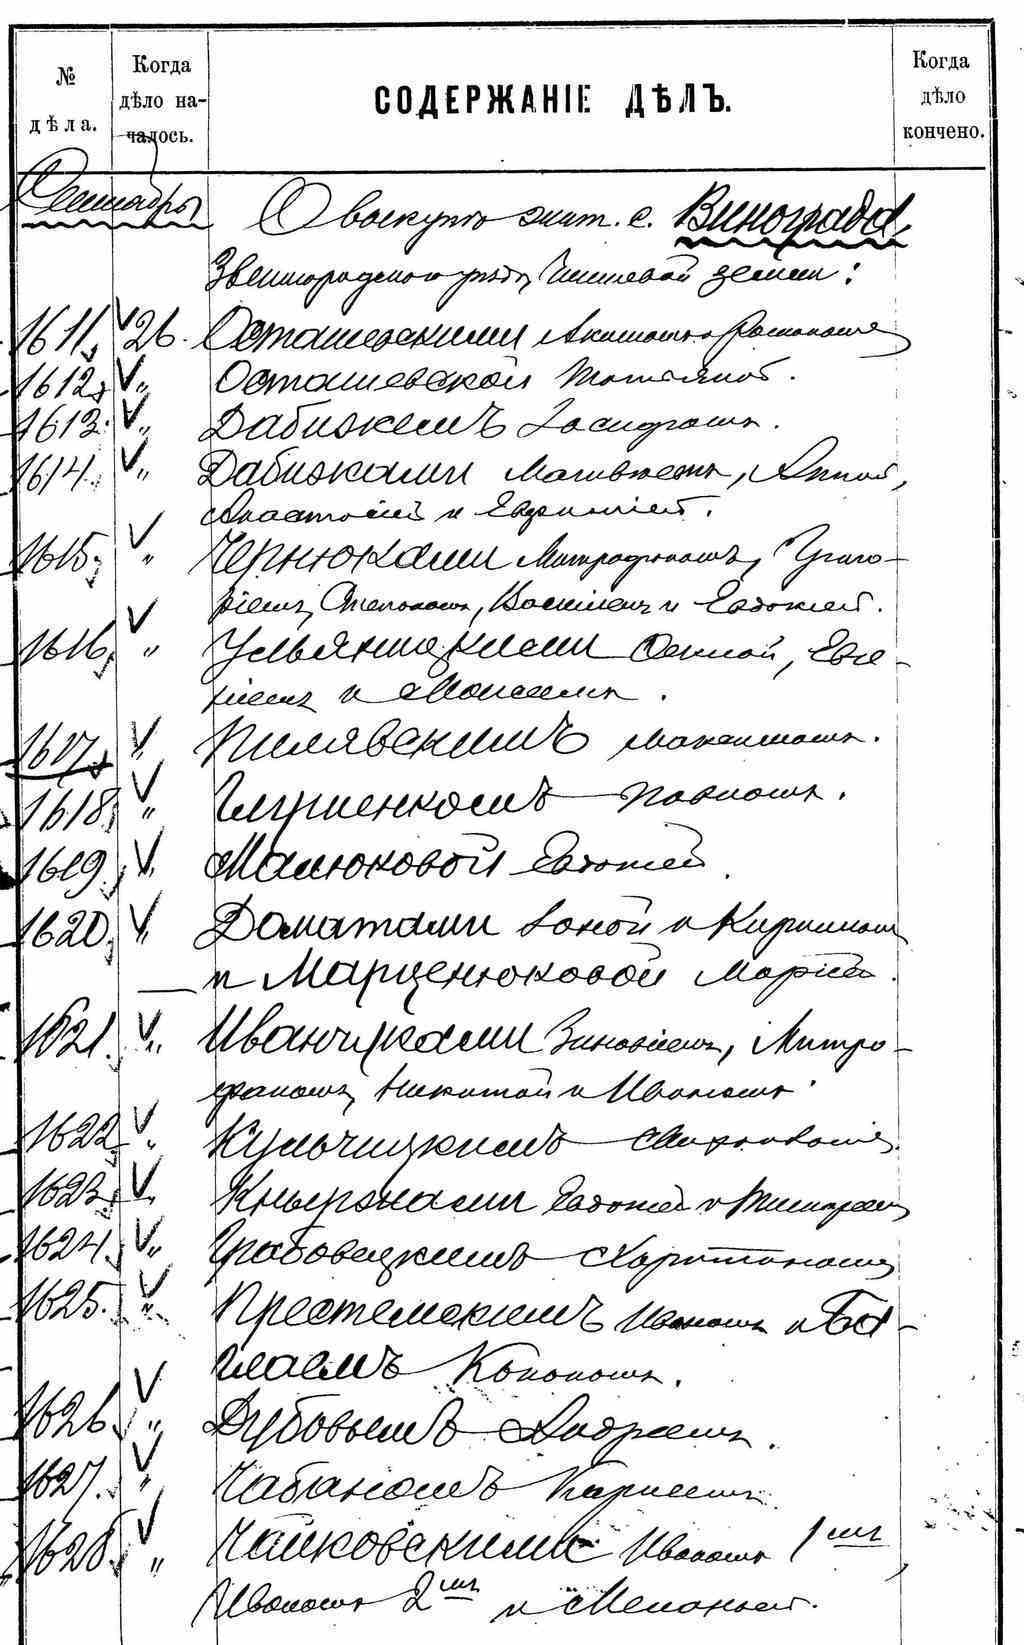 №
дѣла.
Когда
дѣло на-
чалось.
СОДЕРЖАНІЕ ДѢЛЪ.
Когда
дѣло
кончено.
Сентябрь
О выкупѣ жит. с. Винограда
Звенигородского уѣзда, Чиншевой земли:
1611. 26. Осташевскими
1612. " Осташевской Татьяной.
1613. " Дабижемъ
1614. " Дабижами Матвѣемъ, Анной,
Анастасіей и Евфиміей.
1615. " Чернюками Митрофаномъ, Григо-
ріемъ, Степаномъ, Василіемъ и Евдокіей.
1616. " Ульяницкими
и Моисеемъ.
1617. " Пилявскимъ Максимомъ.
1618. " Глущенкомъ Павломъ.
1619. " Малюковой Евдокіей.
1620. " Доматами и Кирилломъ
и Марценюковой Маріей.
1621. " Иванчуками Зиновіемъ, Митро-
фаномъ, Никитой и Иваномъ.
1622. " Кульчицкимъ
1623. " Евдокіей и
1624. " Грабовецкимъ Харитономъ
1625. " Престемскимъ Иваномъ и Ба-
глаемъ Конономъ.
1626. " Дубовымъ Андреемъ.
1627. " Чабаномъ
1628. " Чайковскими Иваномъ 1мъ,
Иваномъ 2мъ и Меланьей.